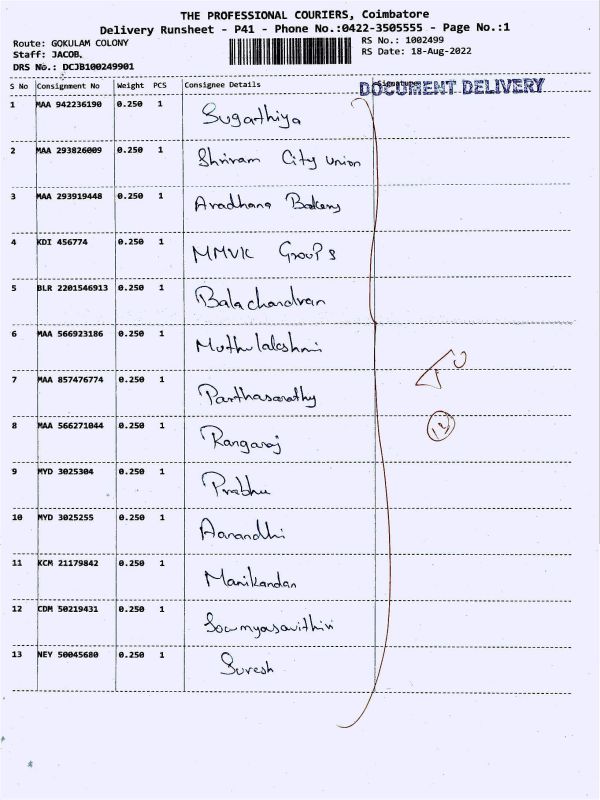 THE PROFESSIONAL COURIERS, Coimbatore
Delivery Runsheet - P41 - Phone No.:0422-3505555 - Page No.:1
Route: GOKULAM COLONY
Staff: JACOB.
DRS No.: DCJB100249901
RS No.: 1002499
RS Date: 18-Aug-2022
S No Consignment No Weight PCS Consignee Details Signature
DOCUMENT DELIVERY
1 MAA 942236190 0.250 1 Sugathiya
2 MAA 293826009 0.250 1 Shriram City Union
3 MAA 293919448 0.250 1 Aradhana Bakery
4 KDI 456774 0.250 1 MMVK GrouPs
5 BLR 2201546913 0.250 1 Balachandran
6 MAA 566923186 0.250 1 Muthulakshmi
7 MAA 857476774 0.250 1 Parthasarathy
8 MAA 566271044 0.250 1 Rangaraj
9 MYD 3025304 0.250 1 Prabhu
10 MYD 3025255 0.250 1
11 KCM 21179842 0.250 1 Manikandan
12 CDM 50219431 0.250 1 Sowmyasavithiri
13 NEY 50045680 0.250 1 Suresh